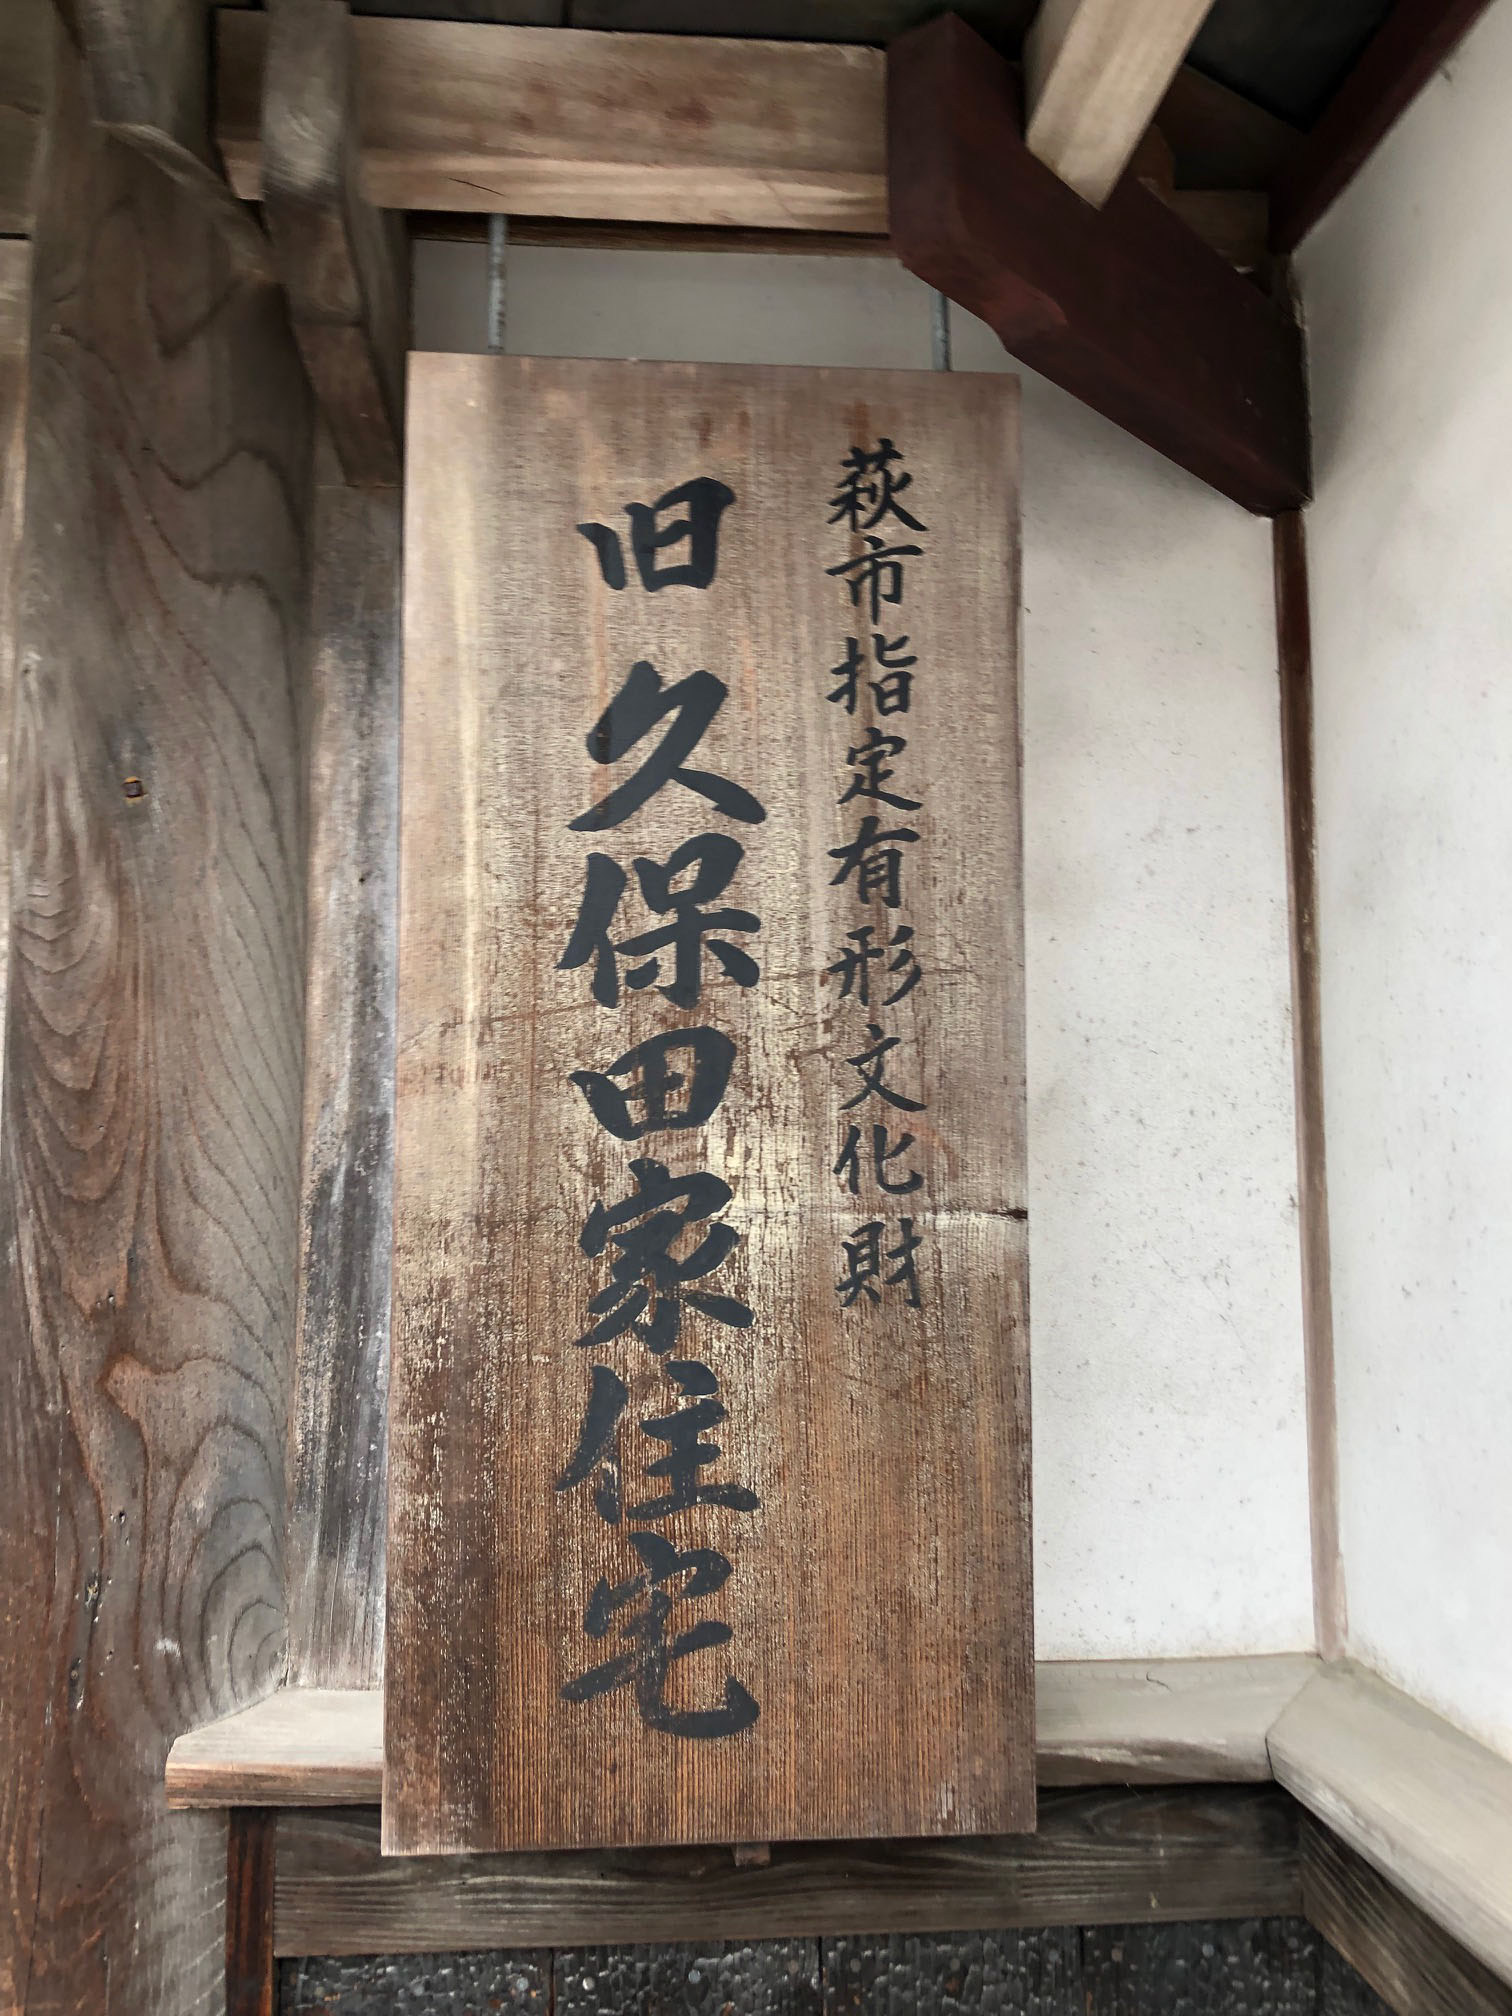 萩市指定有形文化財
旧久保田家住宅